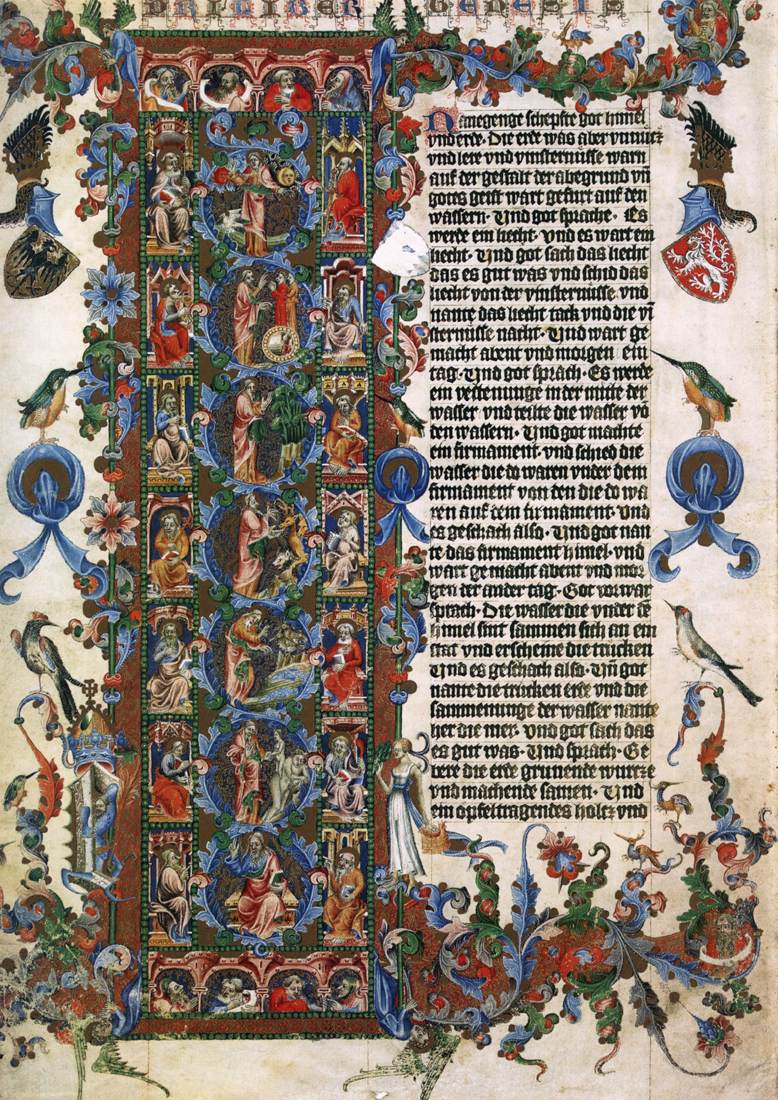 PRI LIBER GENESIS
Nanegenge schepfte got himel
vnd erde. Die erde was aber vnnutz
vnd lere vnd vinsternisse warn
auf der gestalt der abegrund vn̄
gotes geist wart gefurt auf den
wassern. Vnd got sprache. Es
werde ein liecht. vnd es wart ein
liecht. Vnd got sach das liecht
das es gut was vnd schid das
liecht von der vinsternusse. vnd
nante das liecht tack vnd die vī
sternisse nacht. Vnd wart ge
macht abent vnd morgen ein
tag. Vnd got sprach. Es werde
ein vestenunge in der mitte der
wasser vnd teilte die wasser vō
den wassern. Vnd got machte
ein firmament. vnd schied die
wasser die do waren vnder dem
firmament von den die do wa
ren auf dem firmament. vnd
es geschach also. Vnd got nan
te das firmament himel. vnd
wart gemacht abent vnd mor
gen der ander tag. Got vorwar
sprach. Die wasser die vnder dē
himel sint sammen sich an ein
stat vnd erscheine die trucken
Vnd es geschach also. Vn̄ got
nante die trucken erde vnd die
sammenunge der wasser nante
her die mer. vnd got sach das
es gut was. Vnd sprach. Ge
bere die erde grunende wurtze
vnd machende samen. Vnd
ein opfeltragendes holtz vnd